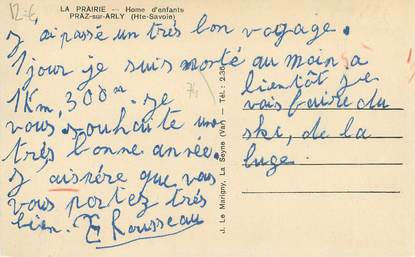 12 €
LA PRAIRIE — Home d'enfants
PRAZ-sur-ARLY (Hte-Savoie)
J, ai passé un très bon voyage.
1 jour je suis monté au moin a
1 Km, 300 m. je
vous souhaite une
très bonne année.
J aispére que vous
vous portez très
bien. Rousseau
74
J. Le Marigny, La Seyne (Var) — Tél. : 2.36
bientôt je
vais faire du
ski, de la
luge.